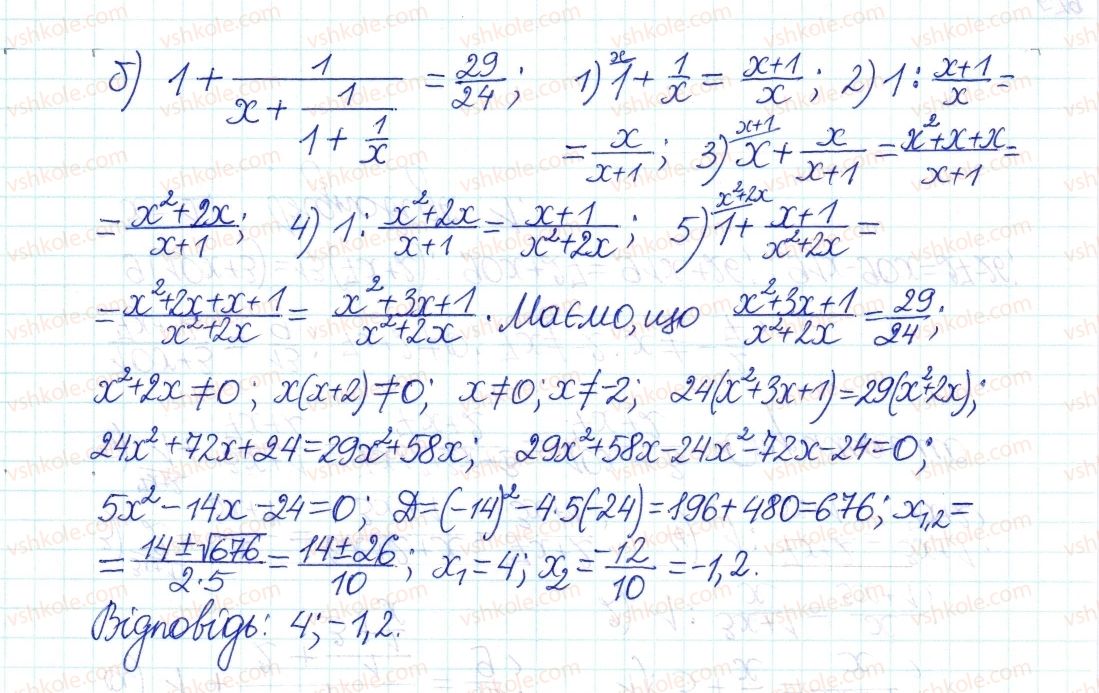 б) 1 + 1/(x + 1/(1 + 1/x)) = 29/24; 1) 1 + 1/x = (x+1)/x; 2) 1 : (x+1)/x =
= x/(x+1); 3) x + x/(x+1) = (x²+x+x)/(x+1) =
= (x²+2x)/(x+1); 4) 1 : (x²+2x)/(x+1) = (x+1)/(x²+2x); 5) 1 + (x+1)/(x²+2x) =
= (x²+2x+x+1)/(x²+2x) = (x²+3x+1)/(x²+2x). Маємо, що (x²+3x+1)/(x²+2x) = 29/24;
x²+2x≠0; x(x+2)≠0; x≠0; x≠-2; 24(x²+3x+1)=29(x²+2x);
24x²+72x+24=29x²+58x; 29x²+58x-24x²-72x-24=0;
5x²-14x-24=0; D=(-14)²-4·5(-24)=196+480=676; x₁,₂=
= (14±√676)/(2·5) = (14±26)/10; x₁=4; x₂= -12/10 = -1,2.
Відповідь: 4; -1,2.